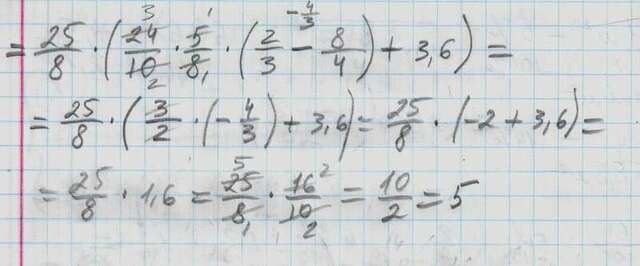 = 25/8 · (24/10 · 5/8 · (2/3 - 8/4) + 3,6) =
= 25/8 · (3/2 · (-4/3) + 3,6) = 25/8 · (-2 + 3,6) =
= 25/8 · 1,6 = 25/8 · 16/10 = 10/2 = 5